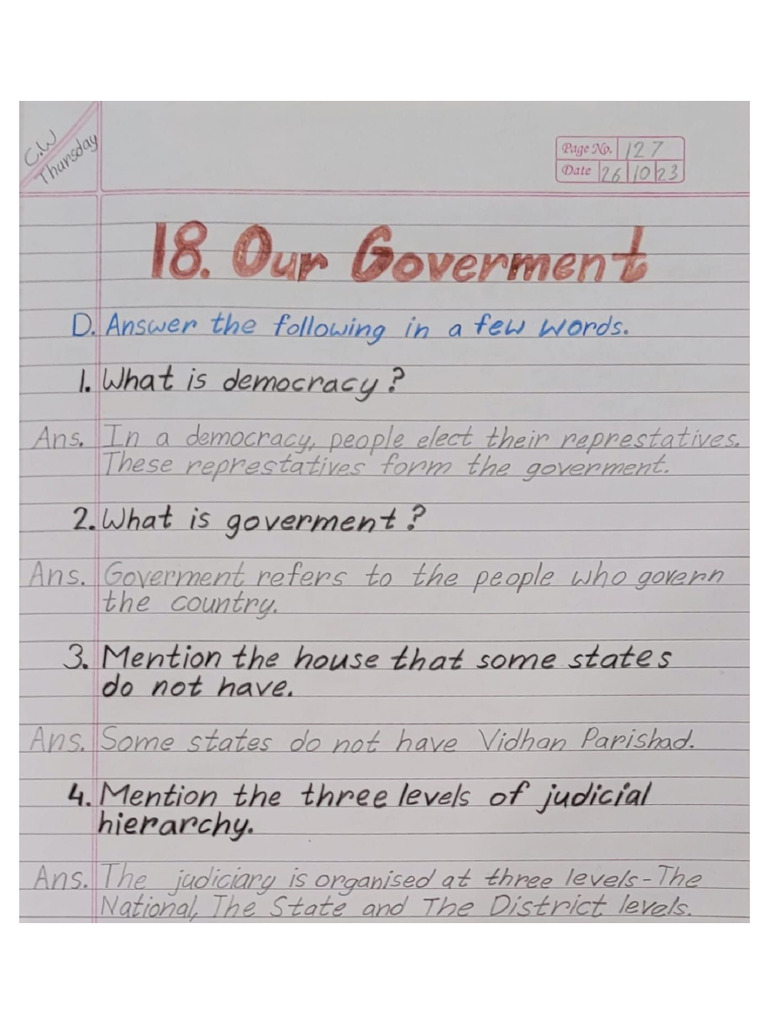 C.W
Thursday
Page No. 127
Date 26 10 23
18. Our Goverment
D. Answer the following in a few words.
1. What is democracy?
Ans. In a democracy, people elect their represtatives.
These represtatives form the goverment.
2. What is goverment?
Ans. Goverment refers to the people who govern
the country.
3. Mention the house that some states
do not have.
Ans. Some states do not have Vidhan Parishad.
4. Mention the three levels of judicial
hierarchy.
Ans. The judiciary is organised at three levels - The
National, The State and The District levels.